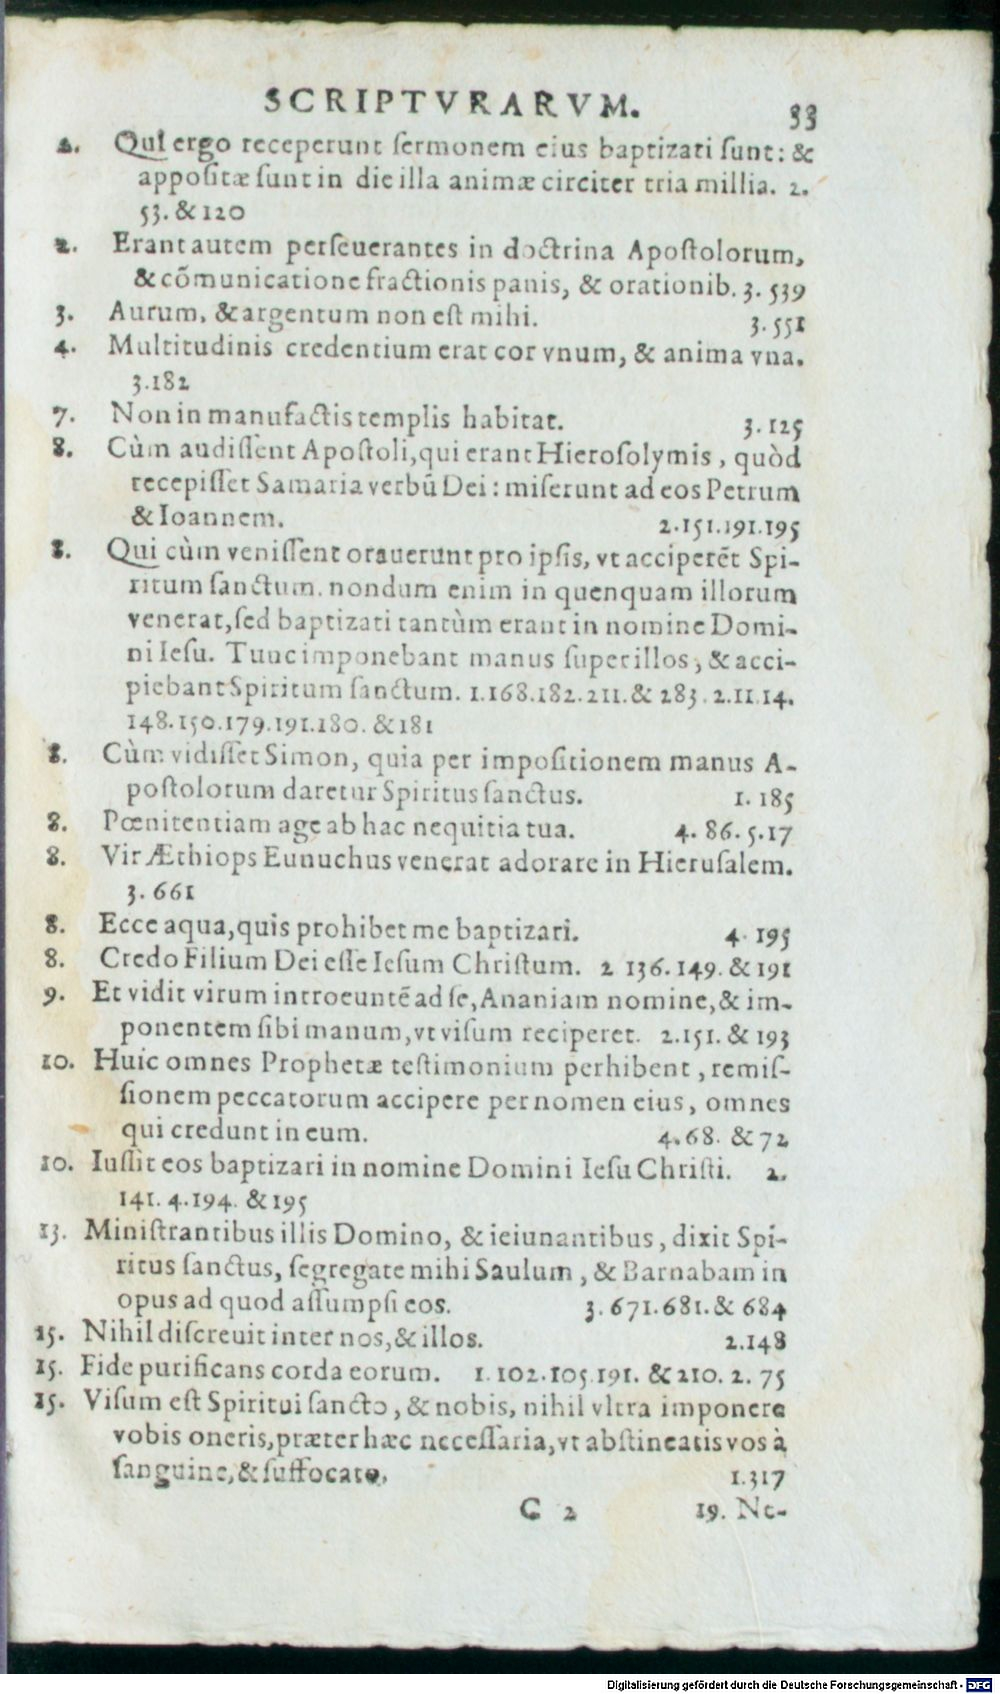 SCRIPTVRARVM. 33
2. Qui ergo receperunt ſermonem eius baptizati ſunt: &
appoſitæ ſunt in die illa animæ circiter tria millia. 2.
53. & 120
2. Erant autem perſeuerantes in doctrina Apoſtolorum,
& cõmunicatione fractionis panis, & orationib. 3. 539
3. Aurum, & argentum non eſt mihi. 3. 551
4. Multitudinis credentium erat cor vnum, & anima vna.
3.182
7. Non in manufactis templis habitat. 3. 125
8. Cùm audiſſent Apoſtoli, qui erant Hieroſolymis, quòd
recepiſſet Samaria verbũ Dei: miſerunt ad eos Petrum
& Ioannem. 2.151.191.195
8. Qui cùm veniſſent orauerunt pro ipſis, vt acciperẽt Spi-
ritum ſanctum. nondum enim in quenquam illorum
venerat, ſed baptizati tantùm erant in nomine Domi-
ni Ieſu. Tuuc imponebant manus ſuper illos, & acci-
piebant Spiritum ſanctum. 1.168.182.211.& 283. 2.11.14.
148.150.179.191.180. & 181
8. Cùm vidiſſet Simon, quia per impoſitionem manus A-
poſtolorum daretur Spiritus ſanctus. 1. 185
8. Pœnitentiam age ab hac nequitia tua. 4. 86. 5.17
8. Vir Æthiops Eunuchus venerat adorare in Hieruſalem.
3. 661
8. Ecce aqua, quis prohibet me baptizari. 4. 195
8. Credo Filium Dei eſſe Ieſum Chriſtum. 2 136. 149. & 191
9. Et vidit virum introeuntẽ ad ſe, Ananiam nomine, & im-
ponentem ſibi manum, vt viſum reciperet. 2.151. & 193
10. Huic omnes Prophetæ teſtimonium perhibent, remiſ-
ſionem peccatorum accipere per nomen eius, omnes
qui credunt in eum. 4.68. & 72
10. Iuſſit eos baptizari in nomine Domini Ieſu Chriſti. 2.
141. 4.194. & 195
13. Miniſtrantibus illis Domino, & ieiunantibus, dixit Spi-
ritus ſanctus, ſegregate mihi Saulum, & Barnabam in
opus ad quod aſſumpſi eos. 3. 671.681. & 684
15. Nihil diſcreuit inter nos, & illos. 2.148
15. Fide purificans corda eorum. 1. 102.105.191. & 210. 2. 75
15. Viſum eſt Spiritui ſancto, & nobis, nihil vltra imponere
vobis oneris, præter hæc neceſſaria, vt abſtineatis vos à
ſanguine, & ſuffocato. 1.317
C 2 19. Ne-
Digitalisierung gefördert durch die Deutsche Forschungsgemeinschaft - DFG